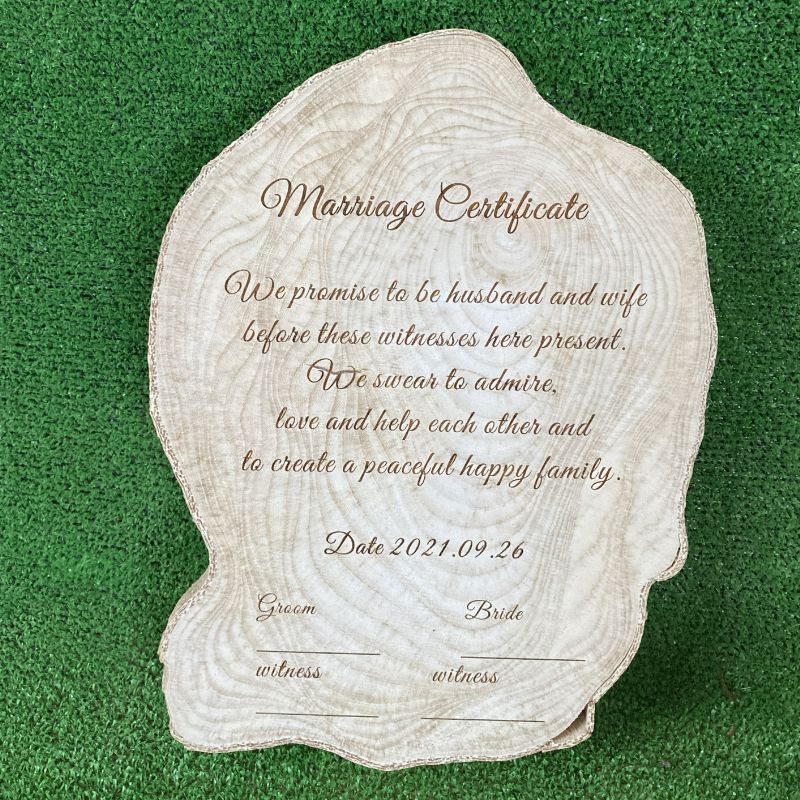 Marriage Certificate
We promise to be husband and wife
before these witnesses here present.
We swear to admire,
love and help each other and
to create a peaceful happy family.
Date 2021.09.26
Groom Bride
witness witness